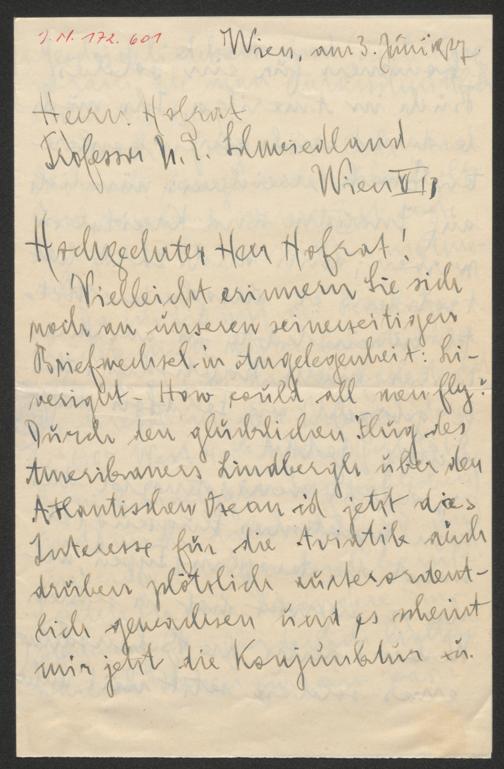 J.N. 172.601
Wien, am 3. Juni 1927
Herrn Hofrat
Professor Schwiedland
Wien VI,
Hochgeehrter Herr Hofrat!
Vielleicht erinnern Sie sich
noch an unseren seinerzeitigen
Briefwechsel in Angelegenheit: Li-
veright - How could all men fly?
Durch den glücklichen Flug des
Amerikaners Lindbergh über den
Atlantischen Ozean ist jetzt das
Interesse für die Aviatik auch
drüben plötzlich ausserordent-
lich gewachsen und es scheint
mir jetzt die Konjunktur u.